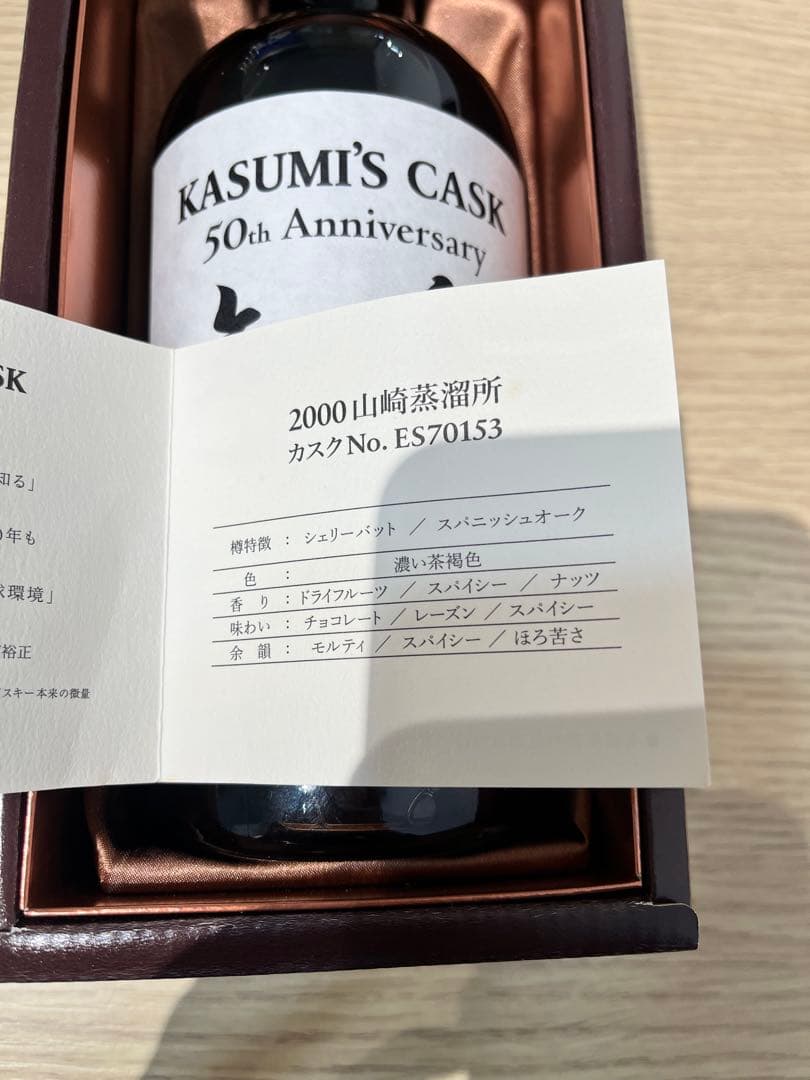 KASUMI'S CASK
50th Anniversary
SK
知る」
年も
環境」
裕正
スキー本来の微量
2000山崎蒸溜所
カスクNo. ES70153
樽特徴 : シェリーバット / スパニッシュオーク
色 : 濃い茶褐色
香り : ドライフルーツ / スパイシー / ナッツ
味わい : チョコレート / レーズン / スパイシー
余韻 : モルティ / スパイシー / ほろ苦さ